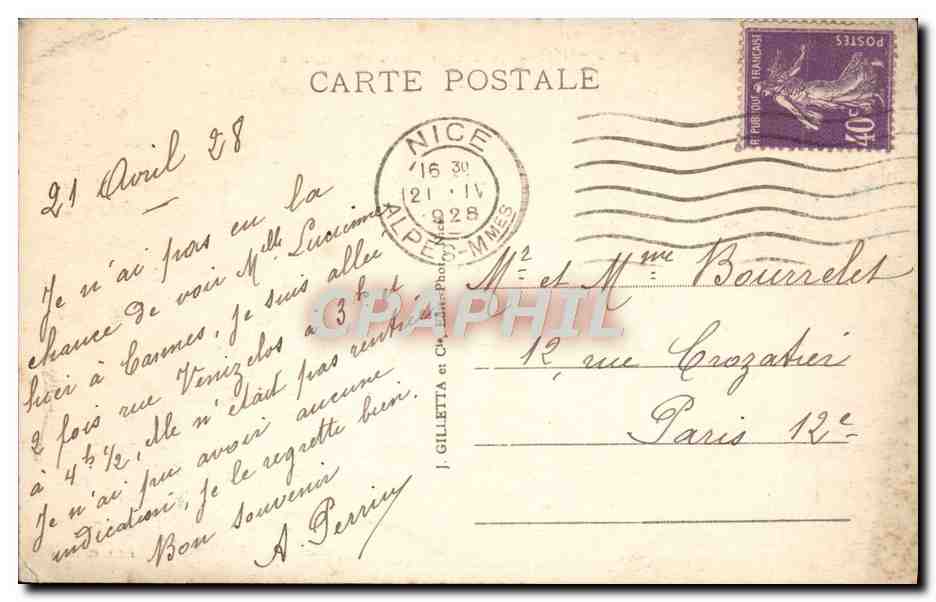 CARTE POSTALE
RÉPUBLIQUE FRANÇAISE
POSTES
40c
NICE
16 30
21 · IV
1928
ALPES-MMES
21 Avril 28
Je n'ai pas eu la
chance de voir Mlle Lucienne
hier à Cannes, je suis allée
2 fois rue Venizelos à 3h et
à 4h 1/2, elle n'était pas rentrée
Je n'ai pu avoir aucune
indication, je le regrette bien.
Bon Souvenir
A. Perrin
J. GILLETTA et Cie, Edit.-Photo, Nice
Mr et Mme Bourrelet
12, rue Crozatier
Paris 12e
CPAPHIL